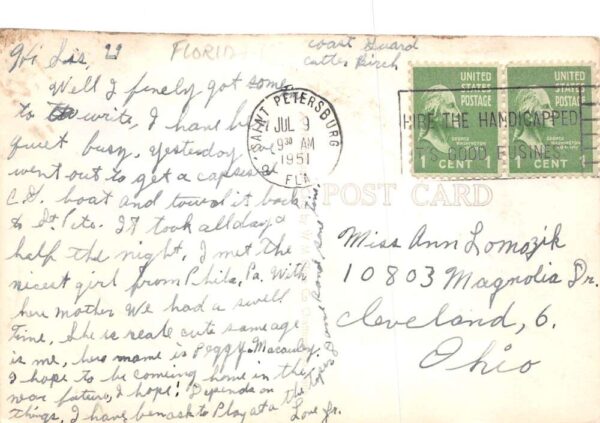 Hi Sis,
FLORID
Coast Guard
Cutter Birch
Well I finely got some
to write, I have be
quiet busy, yesterday we
went out to get a capsised
C.G. boat and towed it back
to St. Pete. It took all day &
half the night, I met the
nicest girl from Phila, Pa. With
here mother We had a swell
time, She is reale cute same age
is me, here name is Peggy Macauley.
I hope to be comeing home in the
near future, I hope! Depends on
things, I have ben ask to Play at a
Love Jr.
SAINT PETERSBURG
JUL 9
9 30 AM
1951
FLA
HIRE THE HANDICAPPED
GOOD BUSINESS
UNITED
STATES
POSTAGE
GEORGE
WASHINGTON
1 CENT
UNITED
STATES
POSTAGE
GEORGE
WASHINGTON
1 CENT
POST CARD
Miss Ann Lomozik
10803 Magnolia Dr.
Cleveland, 6.
Ohio